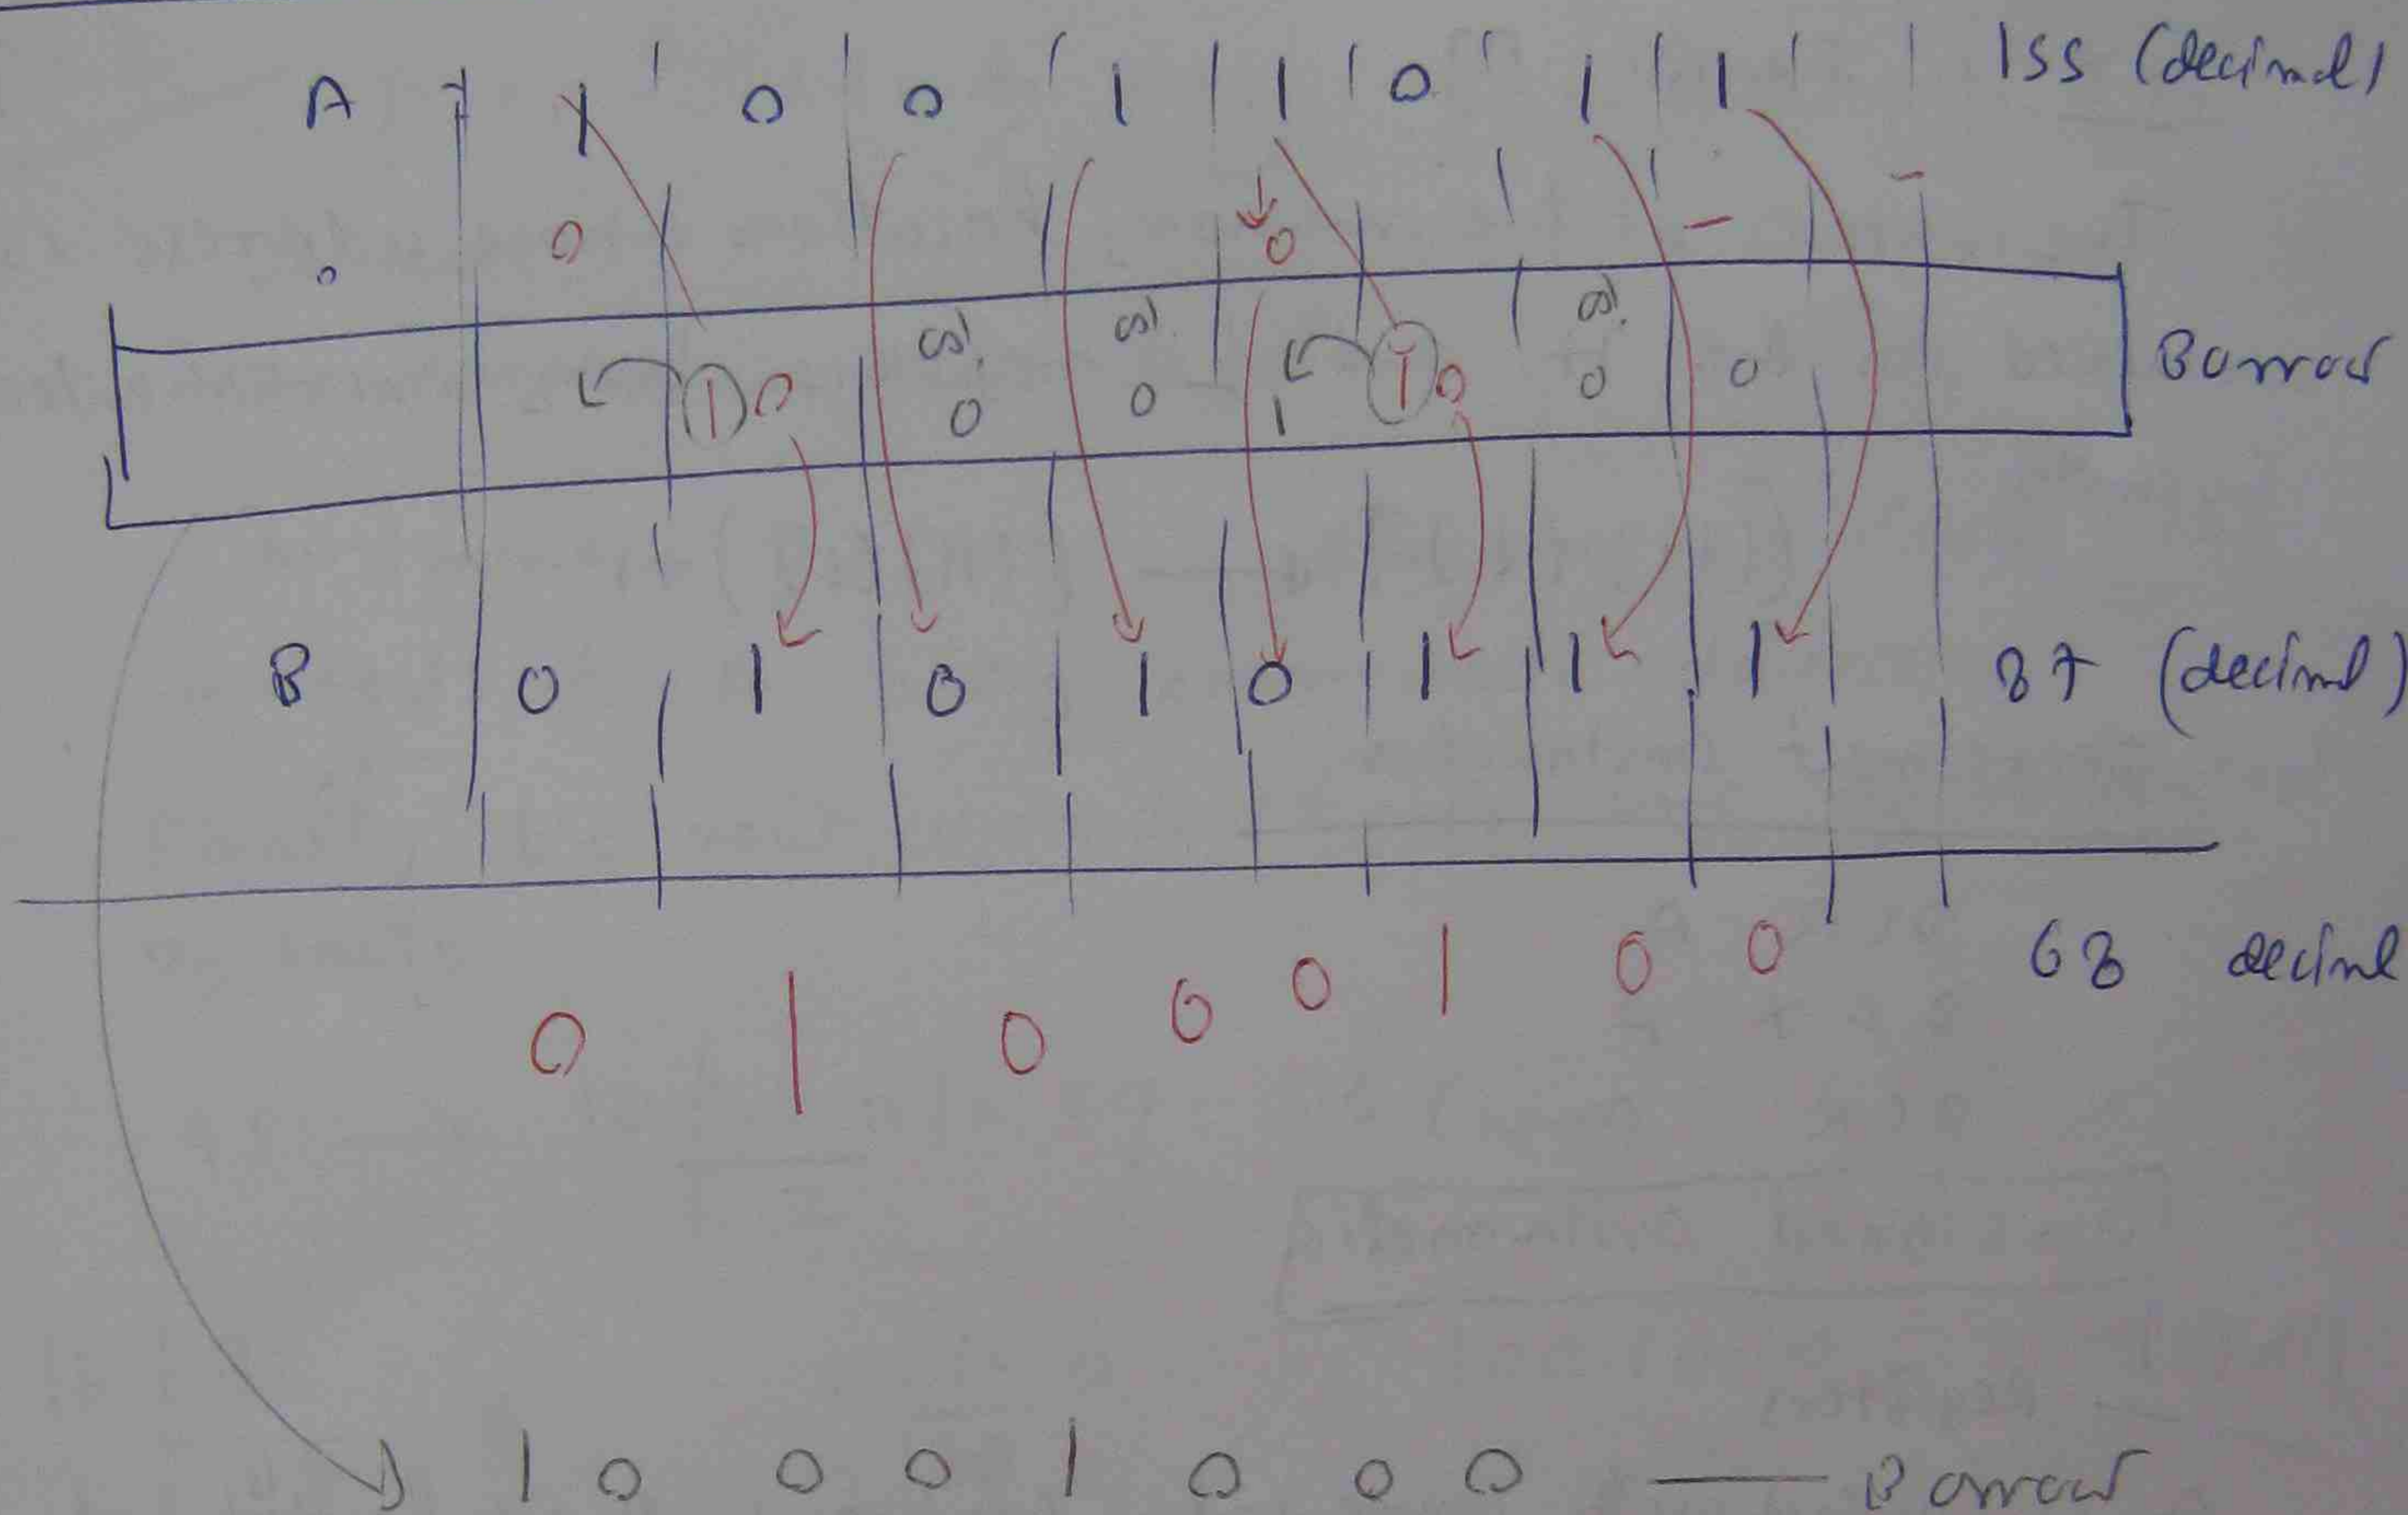 A 1 0 0 1 1 0 1 1 155 (decimal)
0 0 - -
0
1 0 0 0 1 1 0 0 0 Borrow
B 0 1 0 1 0 1 1 1 87 (decimal)
0 1 0 0 0 1 0 0 68 decimal
1 0 0 0 1 0 0 0 — Borrow